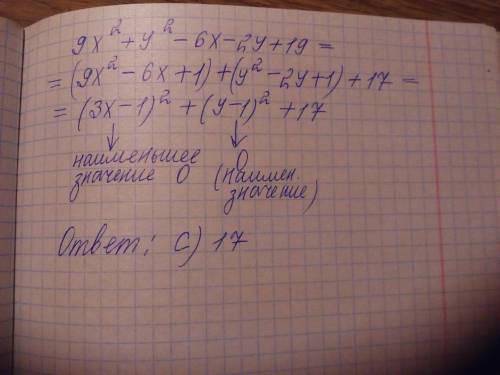 9x² + y² - 6x - 2y + 19 =
= (9x² - 6x + 1) + (y² - 2y + 1) + 17 =
= (3x - 1)² + (y - 1)² + 17
наименьшее значение 0
0 (наимен. значение)
Ответ: С) 17